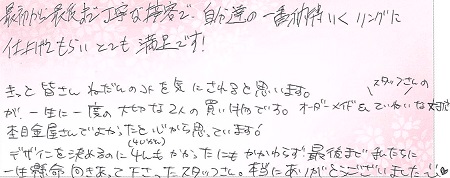 最初から最後まで丁寧な接客で、自分達の一番納得いくリングに
仕上げてもらいとても満足です!
きっと皆さんねだんのコトを気にされると思います。
が、一生に一度の大切な2人の買い物です。オーダーメイド&ていねいな対応
スタッフさんの
杢目金屋さんでよかったと心から思っています!
(4じかん)
デザインを決めるのに4hもかかったにもかかわらず!最後まで私たちに
一生懸命向きあって下さったスタッフさん。本当にありがとうございました